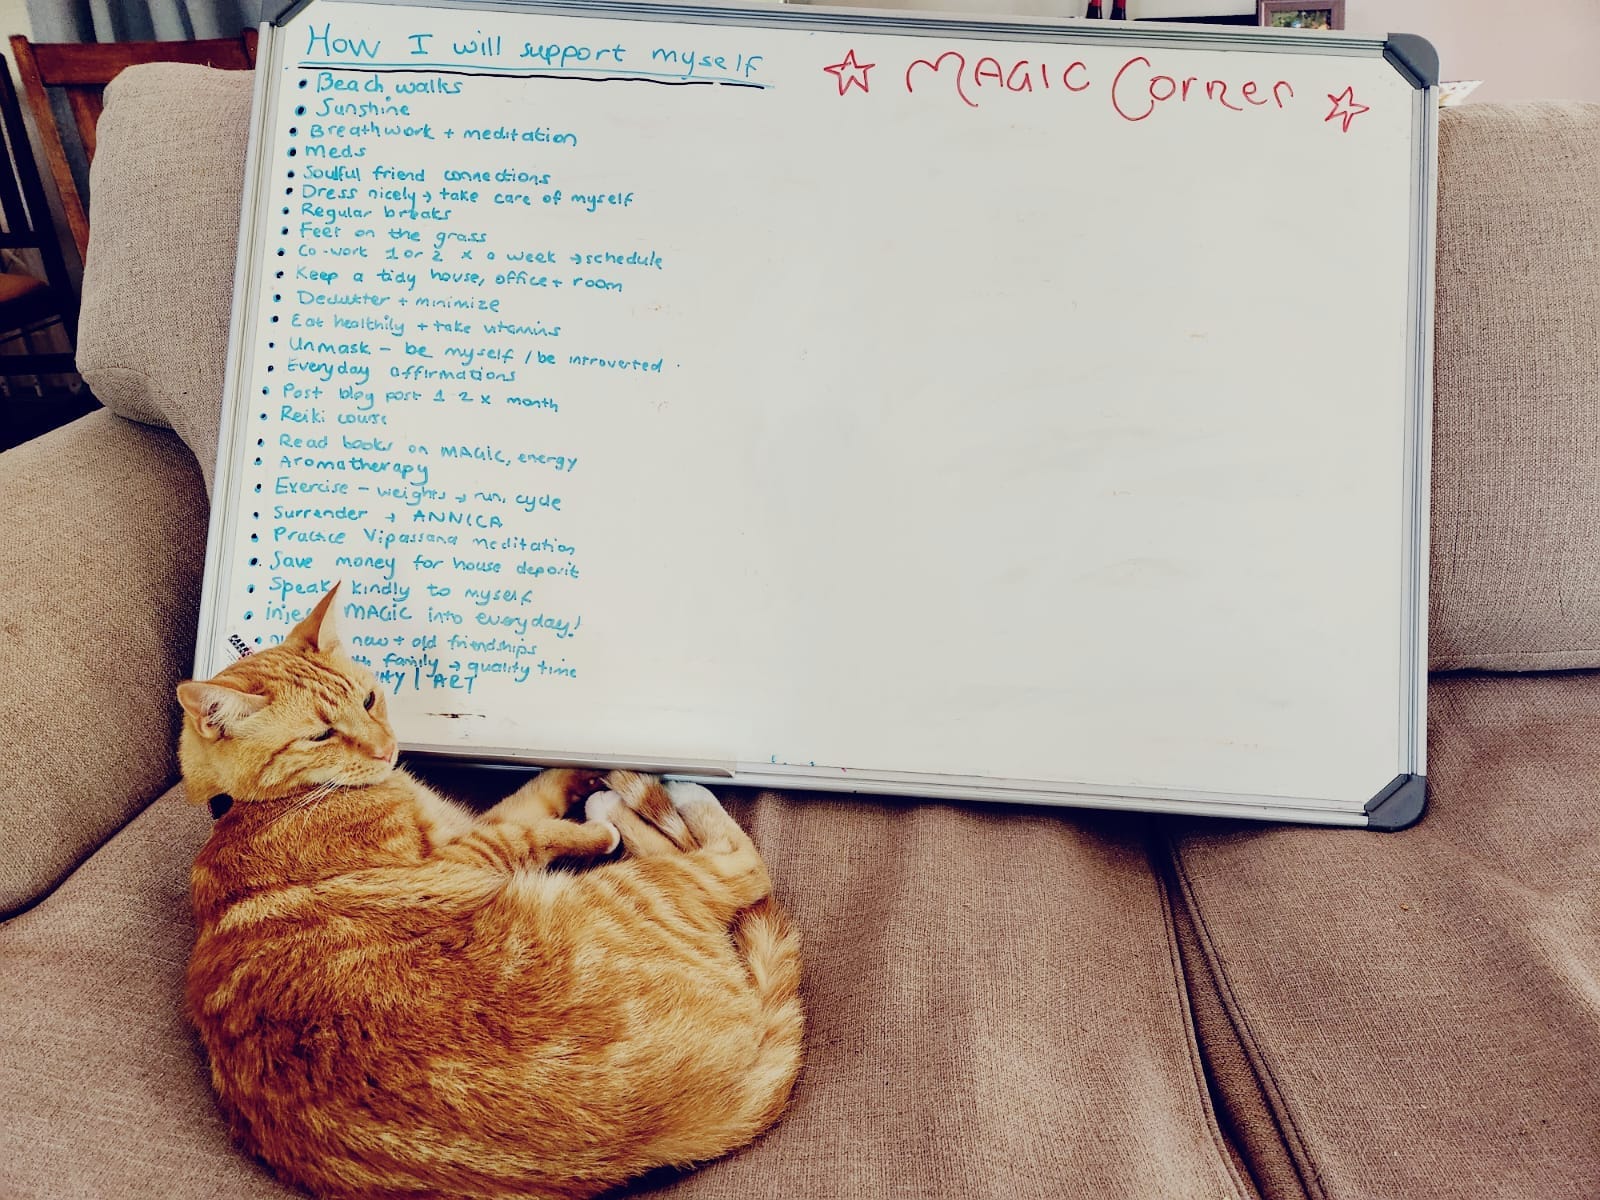 How I will support myself
• Beach walks
• Sunshine
• Breathwork + meditation
• Meds
• Soulful friend connections
• Dress nicely → take care of myself
• Regular breaks
• Feet on the grass
• Co-work 1 or 2 x a week → schedule
• Keep a tidy house, office + room
• Declutter + minimize
• Eat healthily + take vitamins
• Unmask - be myself / be introverted
• Everyday affirmations
• Post blog post 1-2 x month
• Reiki course
• Read books on MAGIC, energy
• Aromatherapy
• Exercise - weights → run, cycle
• Surrender → ANNICA
• Practice Vipassana meditation
• Save money for house deposit
• Speak kindly to myself
• MAGIC into everyday!
• new + old friendships
family → quality time
| ART
☆ MAGIC Corner ☆